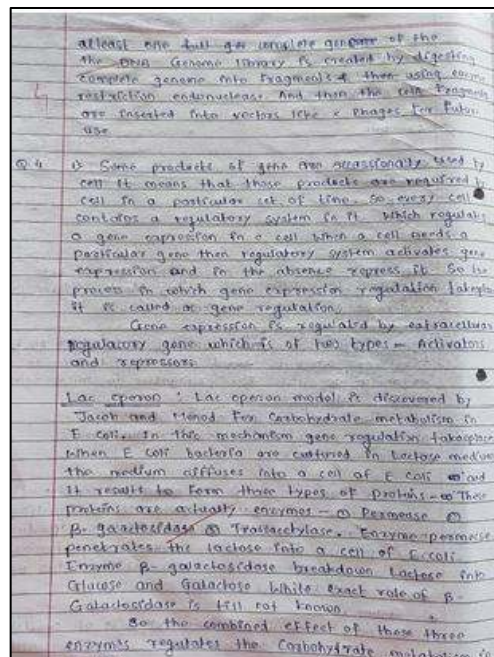 atleast one full complete genome of the
the DNA Genome library is created by digesting
complete genome into fragments & then using enzyme
restriction endonuclease. And then the fragments
are inserted into vectors like phages for future
use
Q.4 i> Some products of gene are occassionally used by
cell it means that those products are required by
cell in a particular set of time. So every cell
contains a regulatory system in it. which regulates
a gene expression in a cell when a cell needs a
particular gene then regulatory system activates gene
expression and in the absence repress it. So the
process in which gene expression regulation takeplace
it is called as gene regulation.
Gene expression is regulated by extracellular
regulatory gene which is of two types - Activators
and repressors
Lac operon : Lac operon model is discovered by
Jacob and Monod for carbohydrate metabolism in
E coli. In this mechanism gene regulation takesplace
when E coli bacteria are cultured in Lactose medium
the medium diffuses into a cell of E coli and
it results to form three types of proteins - These
proteins are actually enzymes - ① Permease ②
β-galactosidase ③ Transacetylase. Enzyme permease
penetrates the lactose into a cell of E.coli
Enzyme β-galactosidase breakdown Lactose into
Glucose and Galactose while exact role of β-
Galactosidase is till not known
So the combined effect of these three
enzymes regulates the Carbohydrate metabolism in